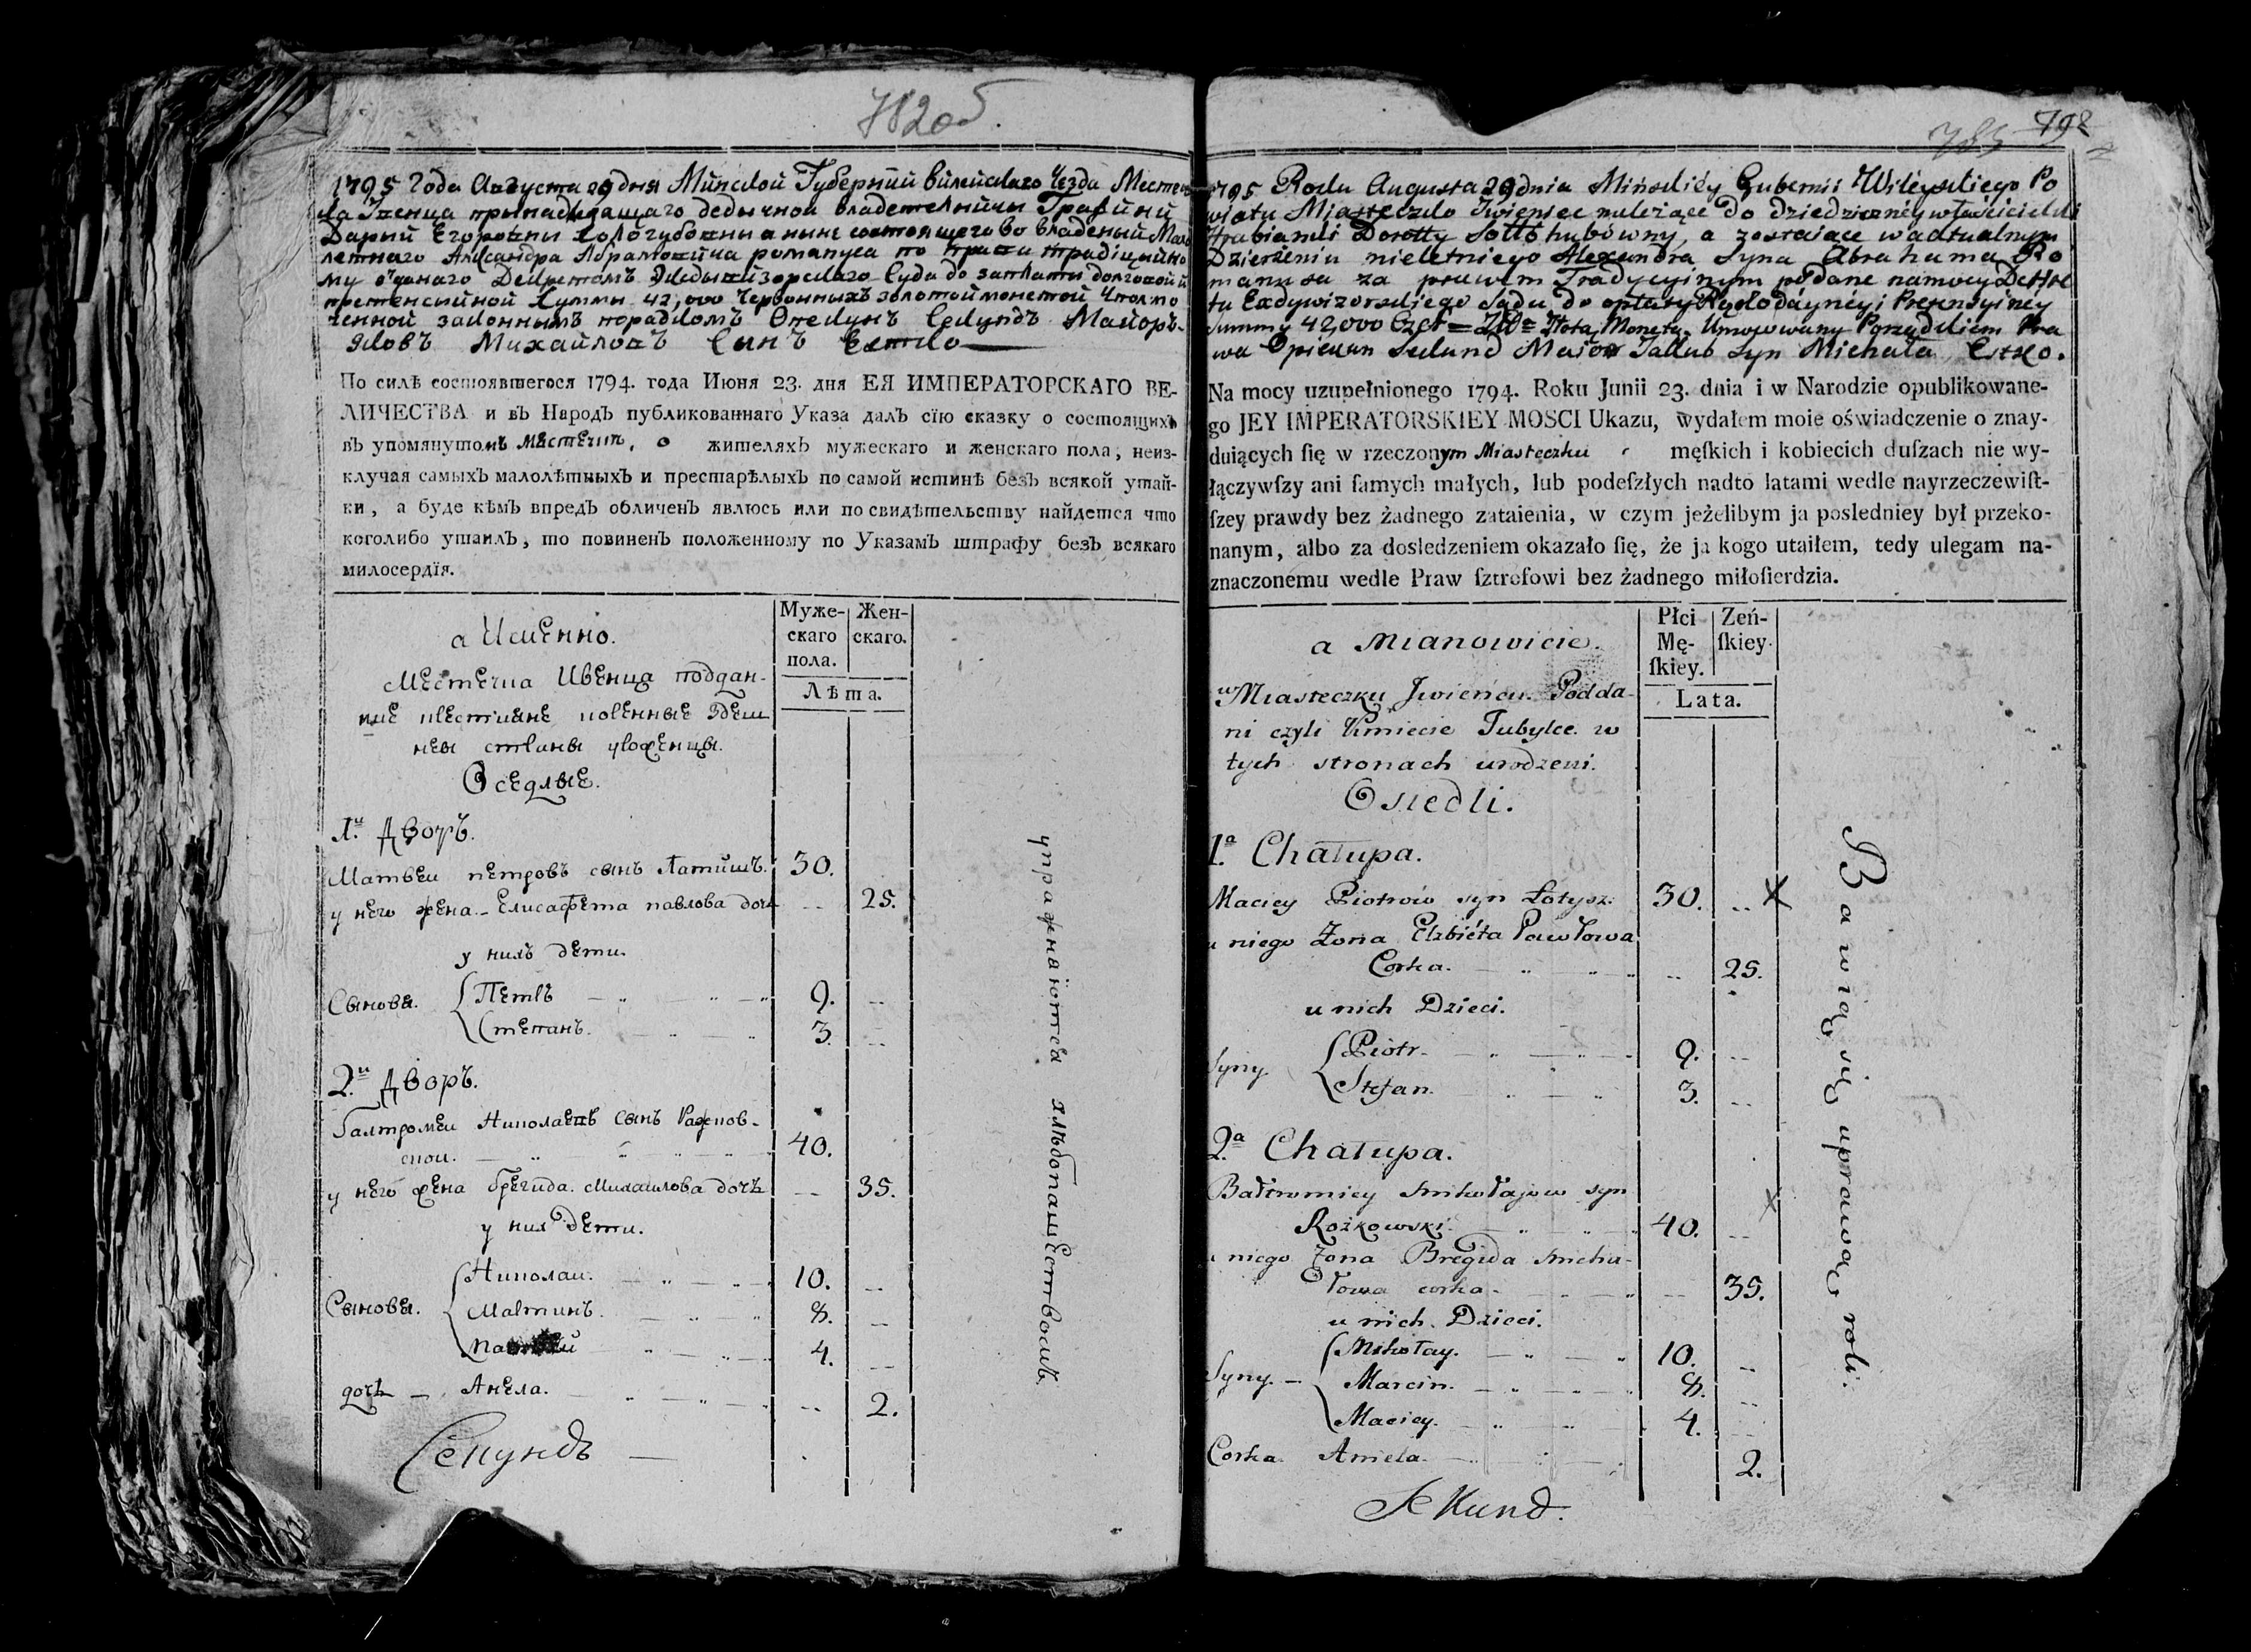 782 об.
1795 Года Августа 29 дня Минской Губернии Вилейскаго Уезда Местеч
ка Ивенца принадлежащаго дедычной владетельницы Графини
Дарьи Егоровны Сологубовны а ныне состоящего во владеный Мало
летнаго Александра Абрамовича романуса по праву традицийно
му отданаго Декретомъ Экзедывизорскаго Суда до заплаты долговой и
претенсийной Суммы 42,000 Червонныхъ золотой монетой Уполмо
ченной законнымъ порадкомъ Опекунъ Секундъ Майоръ
Яковъ Михайловъ Сынъ Естко
По силѣ состоявшегося 1794. года Июня 23. дня ЕЯ ИМПЕРАТОРСКАГО ВЕ-
ЛИЧЕСТВА и въ Народъ публикованнаго Указа далъ сїю сказку о состоящихъ
въ упомянутомъ местечкѣ, о жителяхъ мужескаго и женскаго пола, неиз-
ключая самыхъ малолѣтныхъ и престарѣлыхъ по самой истинѣ безъ всякой утай-
ки, а буде кѣмъ впредь обличенъ явлюсь или по свидѣтельству найдется что
коголибо утаилъ, то повиненъ положенному по Указамъ штрафу безъ всякаго
милосердїя.
а Именно.
Муже-
скаго
пола.
Жен-
скаго.
Лѣта.
Местечка Ивенца поддан-
ные крестияне коренные здеш
неы страны уроженцы.
Оседлые.
1.й Дворъ.
Матвеи петровъ сынъ Латышъ. 30.
у него жена - Елисафета павлова дочь -- 25.
у нихъ дети.
Сыновя. Петръ 9. --
Степанъ. 3. --
2.й Дворъ.
Балтромеи Николаевъ Сынъ Ражков-
скои. 40.
у него жена брегида Михаилова дочь -- 35.
у них дети.
Сыновя. Николаи. 10. --
Мартинъ. 8. --
4. --
дочь - Анела. -- 2.
Секундъ
упражняются хлѣбопашествомъ.
783 798
1795 Roku Augusta 29 dnia Mińskiéy Gubernii Wileyskiego Po
wiatu Miasteczko Iwieniec należące do dziedziczney właścicielki
Hrabianki Dorotty Sołłohubówny, a zostaiące w aktualnym
Dzierżeniu nieletniego Alexandra Syna Abrahama Ro
manusa za prawem Tradycyinym podane na mocy Dekre
tu Exdywizorskiego Sądu do opłaty Długodayney i Pretensyiney
Summy 42000 Czer = Zło = Złotą Monetą. Umocowany Porządkiem Pra
wa Opiekun Sekund Maior Jakub Syn Michała Estko.
Na mocy uzupełnionego 1794. Roku Junii 23. dnia i w Narodzie opublikowane-
go JEY IMPERATORSKIEY MOSCI Ukazu, wydałem moie oświadczenie o znay-
duiących ſię w rzeczonym Miasteczku męſkich i kobiecich duſzach nie wy-
łączywſzy ani ſamych małych, lub podeſzłych nadto latami wedle nayrzeczewiſt-
ſzey prawdy bez żadnego zataienia, w czym jeżelibym ja posledniey był przeko-
nanym, albo za dosledzeniem okazało ſię, że ja kogo utaiłem, tedy ulegam na-
znaczonemu wedle Praw ſztrefowi bez żadnego miłoſierdzia.
a mianowicie.
Płci
Mę-
ſkiey.
Zeń-
ſkiey.
Lata.
w Miasteczku Jwieńcu. Podda-
ni czyli Kmiecie Tubylce w
tych stronach urodzeni.
Osiedli.
1.a Chałupa.
Maciey Piotrów syn Łotysz. 30. --
u niego Zona Elzbiéta Pawłowa
Corka. -- 25.
u nich Dzieci.
Syny. Piotr. 9. --
Stefan. 3. --
2.a Chałupa.
Bałtromiey Mikołajow syn
Rożkowski. 40. --
u niego żona Bregida Micha-
łowa corka. -- 35.
u nich Dzieci.
Syny. - Mikołay. 10. --
Marcin. 8. --
Maciey. 4. --
Corka Aniela. 2.
Sekund.
Bawią się uprawą roli.